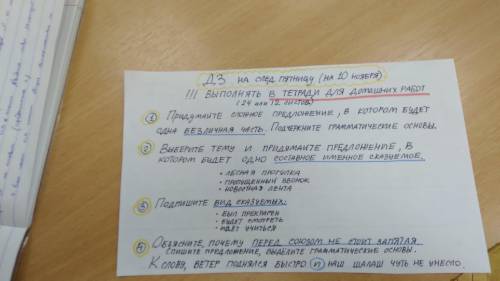 ДЗ на след пятницу (на 10 ноября)
!!! Выполнять в тетради для домашних работ
(24 или 12 листов)
① Придумайте сложное предложение, в котором будет
одна безличная часть. Подчеркните грамматические основы.
② Выберите тему и придумайте предложение, в
котором будет одно составное именное сказуемое.
• лесная прогулка
• пропущенный звонок
• новостная лента
③ Подпишите вид сказуемых:
• был прекрасен
• будет смотреть
• идёт учиться
④ Объясните, почему перед союзом не стоит запятая
спишите предложение, выделите грамматические основы.
К слову, ветер поднялся быстро и наш шалаш чуть не унесло.